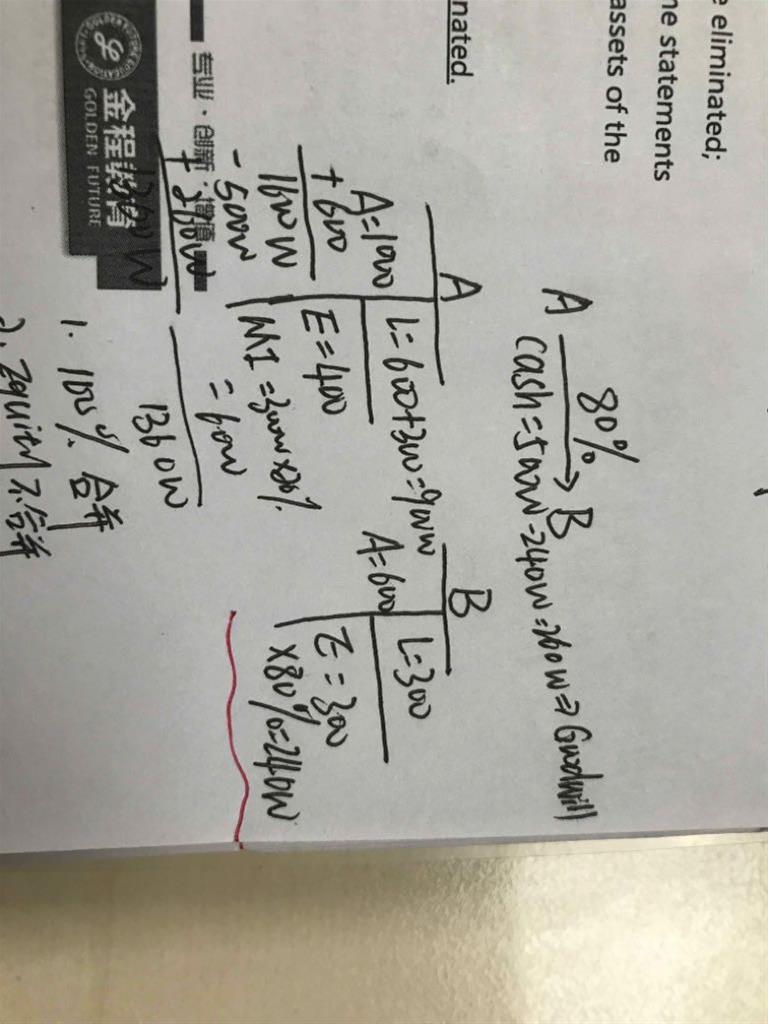 e eliminated;
ne statements
assets of the
nated.
A 80% B
cash=500W-240W=260W⇒Goodwill
A
A=1000
+600
1600W
-500W
+260W
1360W
L=600+300=900W
E=400
MI=300W×20%
=60W
1360W
B
A=600
L=300
E=300
×80%=240W
1. 100% 合并
2. Equity 不合并
专业·创新·增值
金程教育
GOLDEN FUTURE